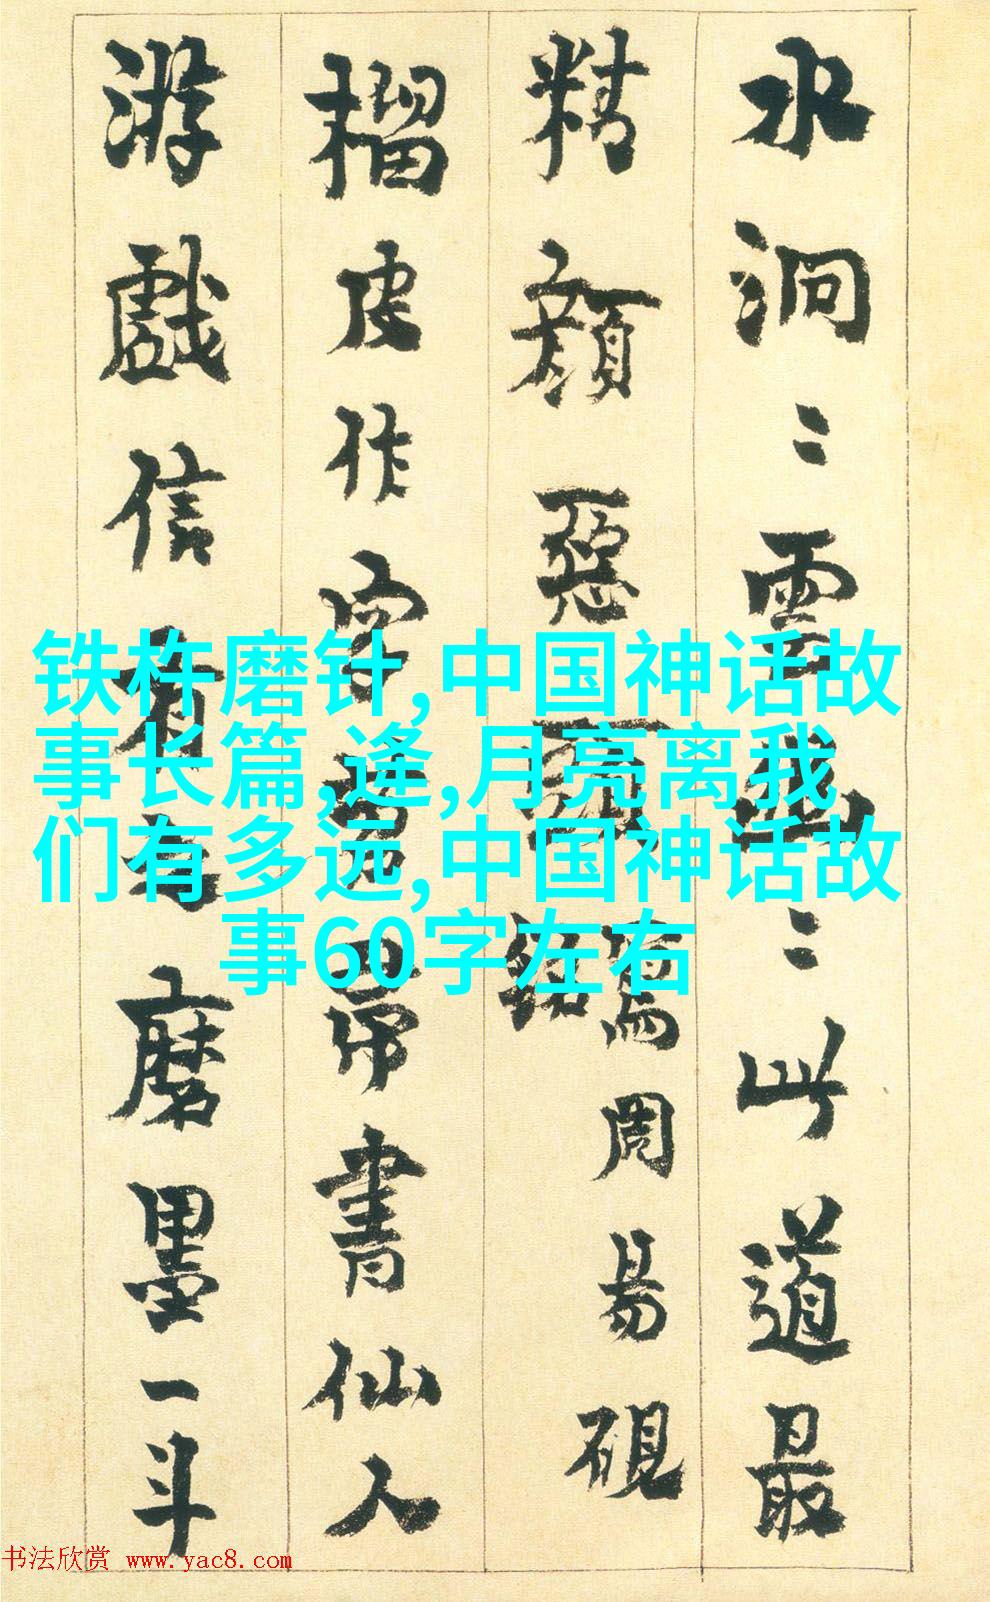 水洞〻雲幽〻此道最
精顏惡周易硯
榴皮作字帚書仙人
游戲信有之磨墨一斗
铁杵磨针,中国神话故
事长篇,逄,月亮离我
们有多远,中国神话故
事60字左右
书法欣赏 www.yac8.com